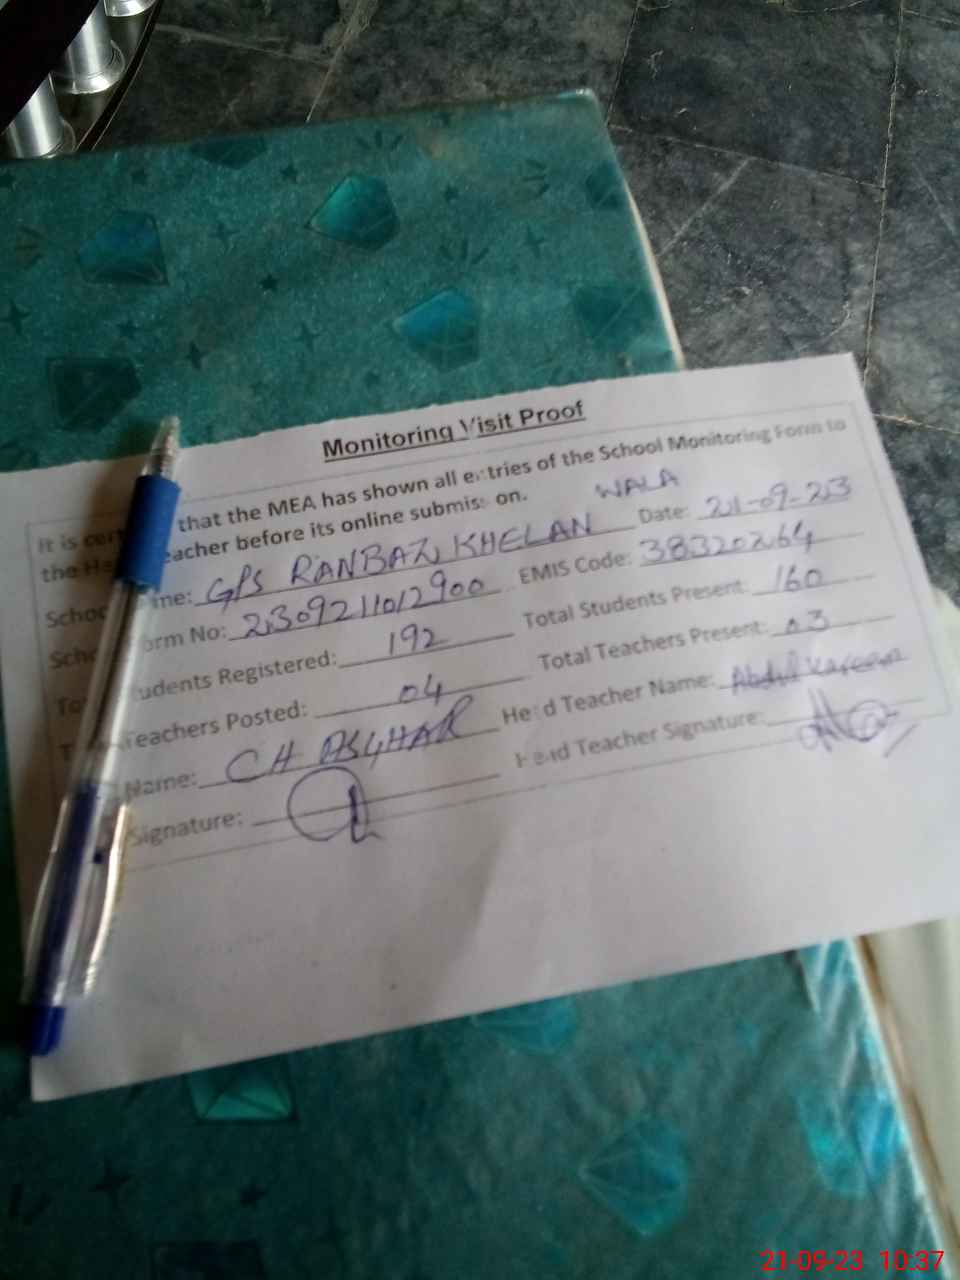 Monitoring Visit Proof
It is cer that the MEA has shown all entries of the School Monitoring Form to
the He eacher before its online submission.
WALA
Schoo me: GPS RANBAZ KHELAN Date: 21-09-23
Scho orm No: 2309211012900 EMIS Code: 38320264
To udents Registered: 192 Total Students Present: 160
T Teachers Posted: 04 Total Teachers Present: 03
Name: CH ASGHAR Head Teacher Name: Abdul Kareem
Signature: Head Teacher Signature:
21-09-23 10:37